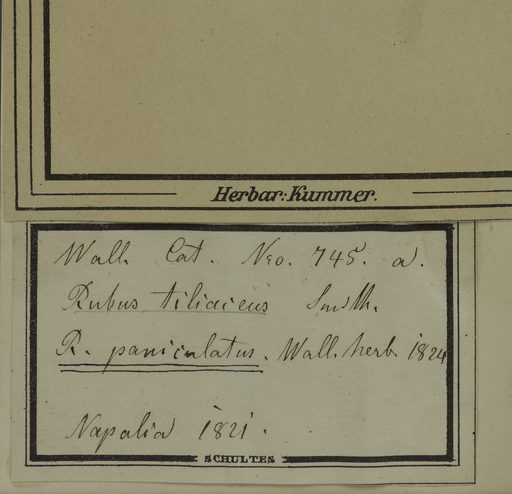 Herbar: Kummer.
Wall. Cat. Nro. 745. a.
Rubus tiliaceus Smith.
R. paniculatus. Wall. herb. 1824
Napalia 1821.
SCHULTES